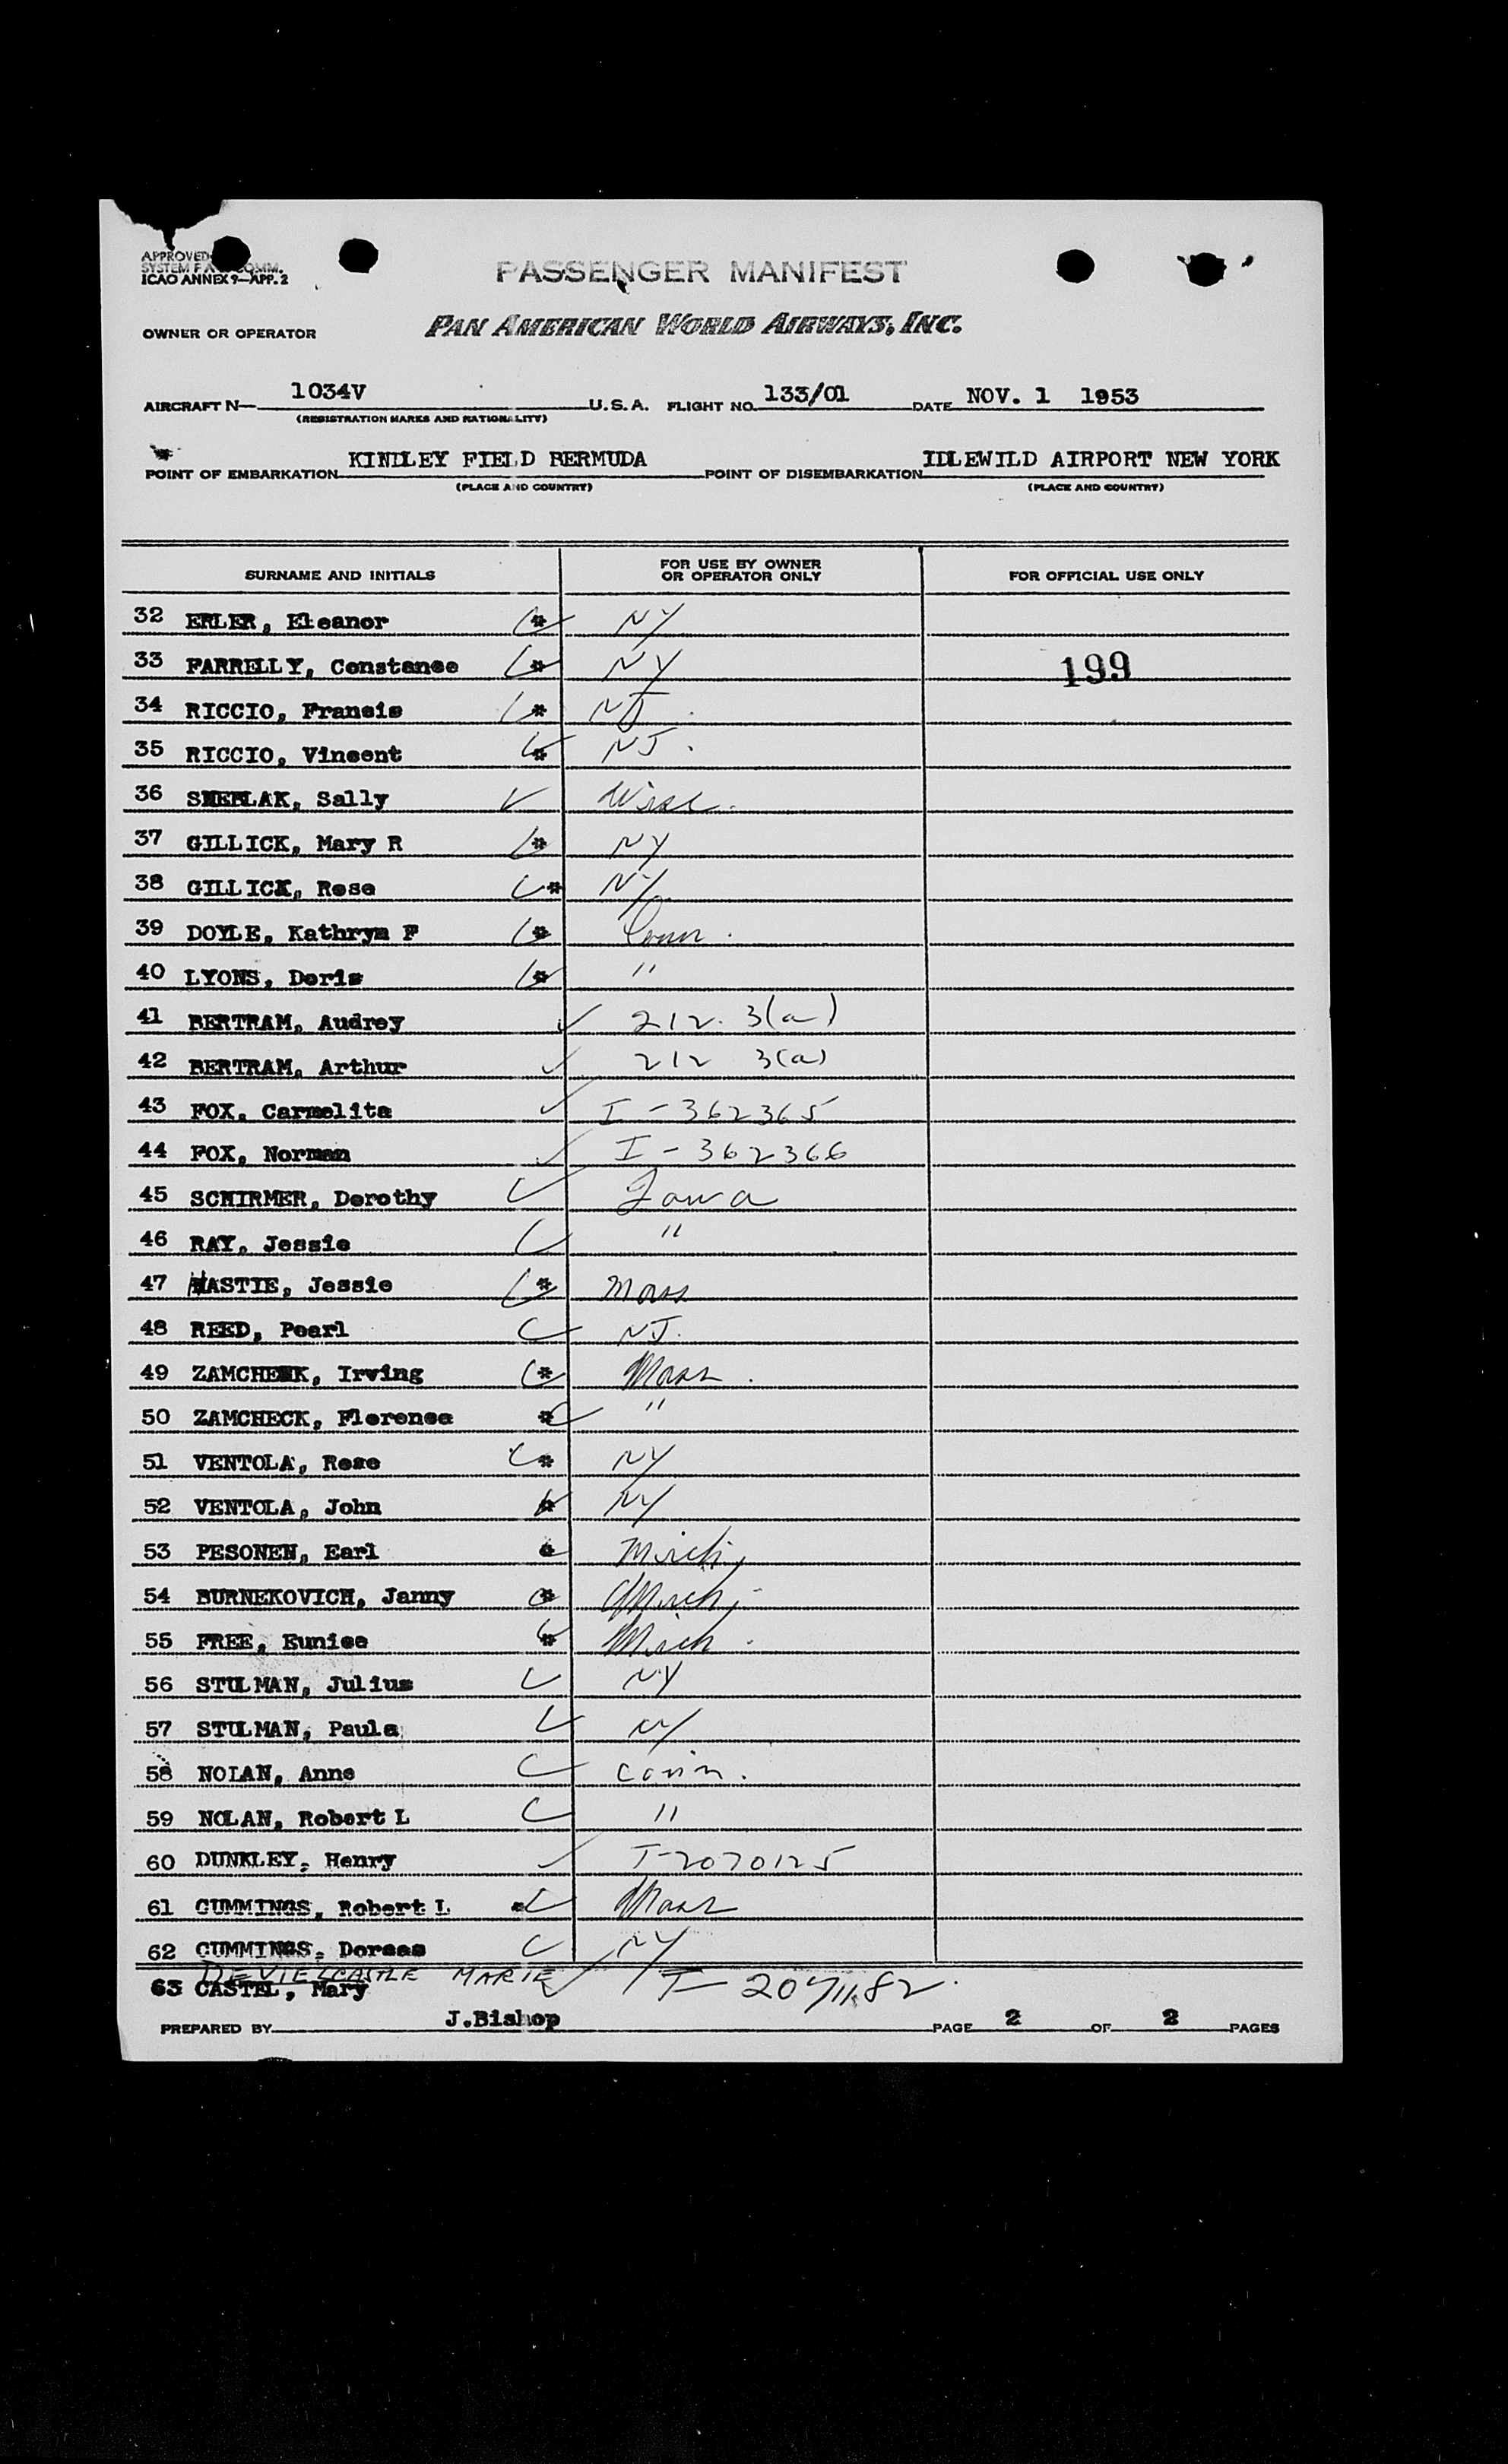 APPROVED
SYSTEM F A COMM.
ICAO ANNEX 9—APP. 2
PASSENGER MANIFEST
OWNER OR OPERATOR PAN AMERICAN WORLD AIRWAYS, INC.
AIRCRAFT N— 1034V U.S.A. FLIGHT NO. 133/01 DATE NOV. 1 1953
(REGISTRATION MARKS AND NATIONALITY)
POINT OF EMBARKATION KINDLEY FIELD BERMUDA POINT OF DISEMBARKATION IDLEWILD AIRPORT NEW YORK
(PLACE AND COUNTRY) (PLACE AND COUNTRY)
SURNAME AND INITIALS FOR USE BY OWNER OR OPERATOR ONLY FOR OFFICIAL USE ONLY
32 ERLER, Eleanor * NY
33 FARRELLY, Constance * NY 199
34 RICCIO, Francis * NJ
35 RICCIO, Vincent * NJ.
36 Sally ✓ Wisc.
37 GILLICK, Mary R * NY
38 GILLICK, Rose * NY
39 DOYLE, Kathryn F * Conn.
40 LYONS, Doris * "
41 BERTRAM, Audrey ✓ 212. 3(a)
42 BERTRAM, Arthur ✓ 212 3(a)
43 FOX, Carmelita ✓ I-362365
44 FOX, Norman ✓ I-362366
45 SCHIRMER, Dorothy ✓ Iowa
46 RAY, Jessie ✓ "
47 HASTIE, Jessie * Mass
48 REED, Pearl ✓ NJ.
49 ZAMCHECK, Irving * Mass.
50 ZAMCHECK, Florence * "
51 VENTOLA, Rose * NY
52 VENTOLA, John * NY
53 PESONEN, Earl * Mich,
54 BURNEKOVICH, Janny * Mich,
55 FREE, Eunice * Mich.
56 STULMAN, Julius ✓ NY
57 STULMAN, Paula ✓ NY
58 NOLAN, Anne ✓ Conn.
59 NOLAN, Robert L ✓ "
60 DUNKLEY, Henry ✓ I-2070125
61 CUMMINGS, Robert L * Mass
62 CUMMINGS, Dorcas ✓ NY
DEVIELCASTLE MARIE ✓
63 CASTEL, Mary
PREPARED BY J.Bishop PAGE 2 OF 2 PAGES